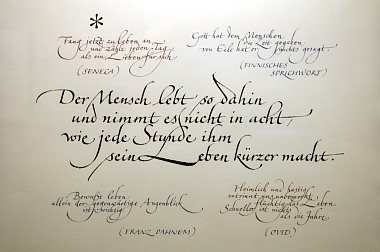 *
Fang jetzt zu leben an,
und zähle jeden Tag
als ein Leben für sich
(SENECA)
Gott hat dem Menschen
die Zeit gegeben
von Eile hat er nichts gesagt.
(FINNISCHES
SPRICHWORT)
Der Mensch lebt so dahin
und nimmt es nicht in acht,
wie jede Stunde ihm
sein Leben kürzer macht.
Bewußt leben
allein der gegenwärtige Augenblick
ist wichtig
(FRANZ PAHNEM)
Heimlich und hastig
entrinnt uns unbemerkt
flüchtig das Leben.
Schneller ist nichts
als die Jahre
(OVID)